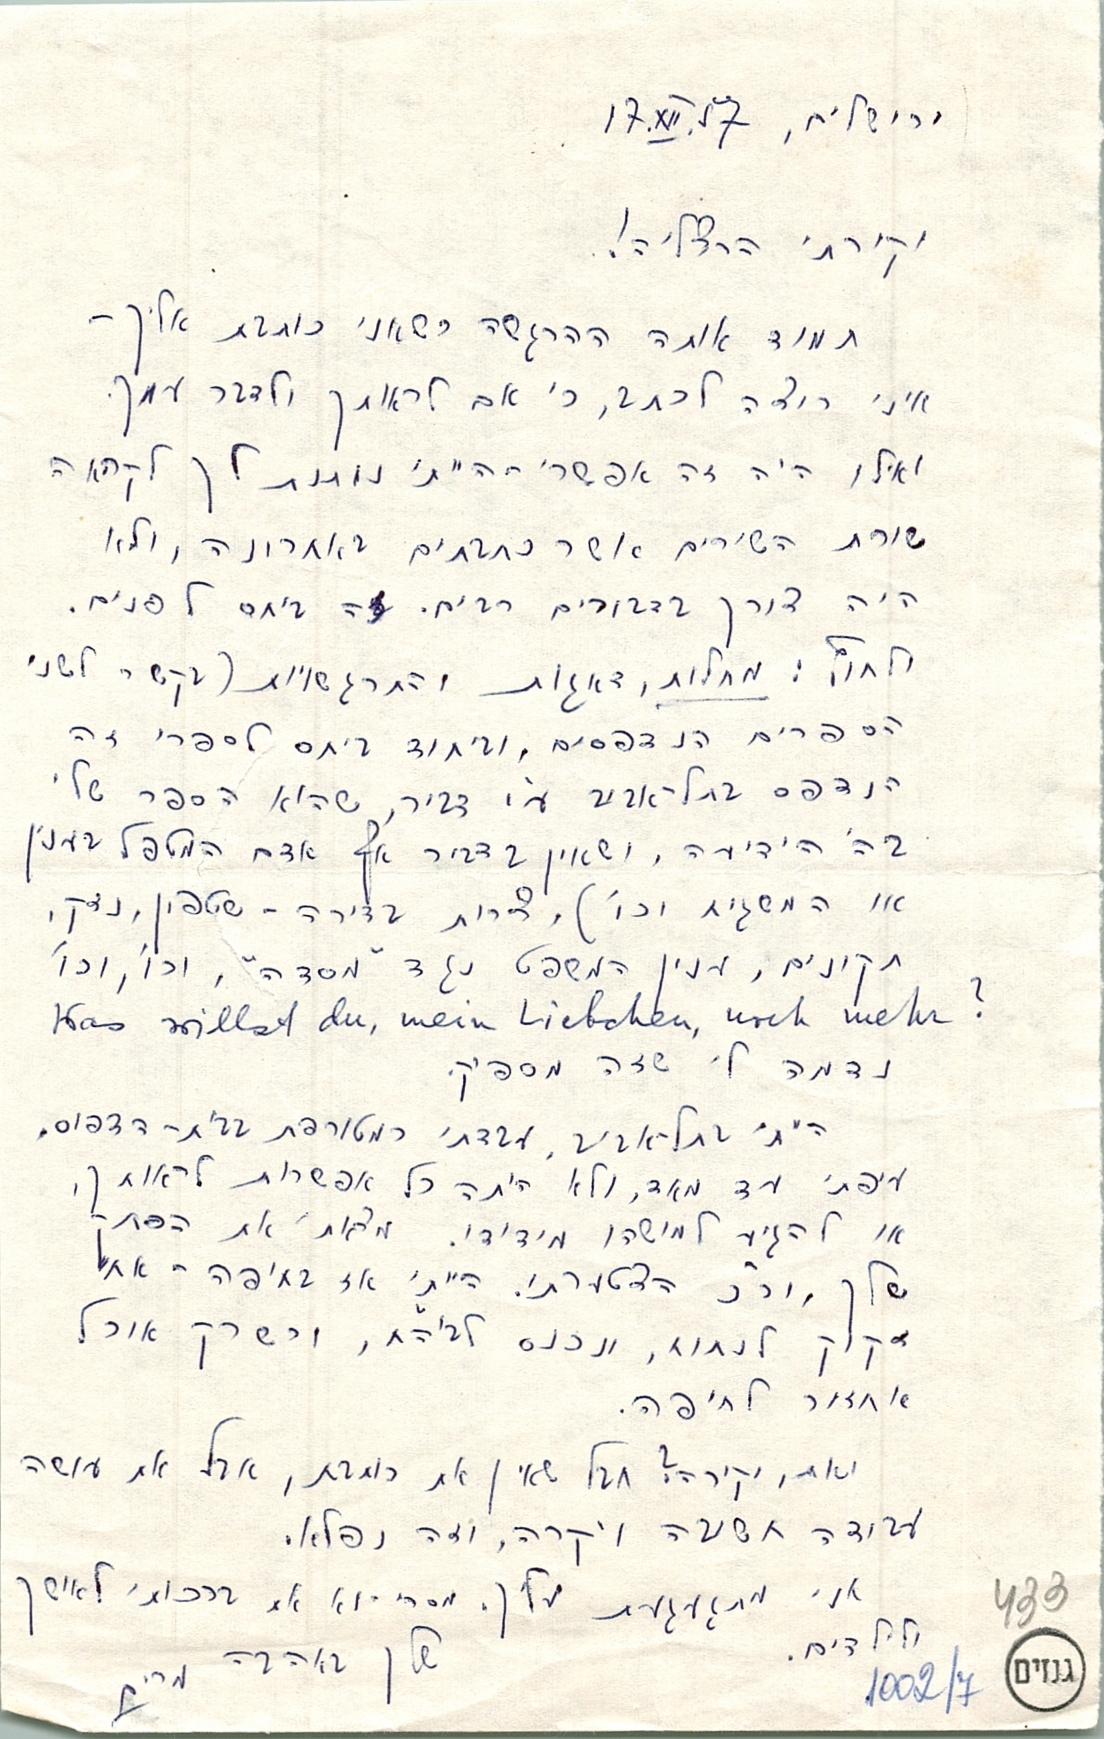 ירושלים, 17.XII.57
יקירתי הרצליה!
תמיד אותה ההרגשה כשאני כותבת אליך –
אינני רוצה לכתב, כי אם לראותך ולדבר עמך.
ואילו היה זה אפשרי – הייתי נותנת לך לקרוא
שורת השירים אשר כתבתים באחרונה, ולא
היה צורך בדבורים רבים. זה ביחס לפנים.
ולחוץ: מחלות, דאגות והתרגשויות (בקשר לשני
הספרים הנדפסים, וביחוד ביחס לספרי זה
הנדפס בתל-אביב ע"י דביר, שהוא הספר שלי
בה' הידיעה, ושאין בדביר אף אדם המטפל בענין
או המשגיח וכו'), צרות בדירה – שטפון, נזק,
תקונים, ענין המשפט נגד "מסדה", וכו', וכו'
Was willst du, mein Liebchen, noch mehr?
נדמה לי שזה מספיק.
הייתי בתל-אביב, עבדתי כמטורפת בבית-הדפוס,
עיפתי עד מאד, ולא היתה כל אפשרות לראותך,
או להגיע למישהו מידידי. מצאתי את הפתק
שלך, וכ"כ הצטערתי. הייתי אז בחיפה – אחי
זקוק לנתוח, ונכנס לביה"ח, וכשרק אוכל
אחזור לחיפה.
ואת, יקירה? חבל שאין את כותבת, אבל את עושה
עבודה חשובה ויקרה, וזה נפלא.
אני מתגעגעת עליך. מסרי-נא את ברכותי לאישך
ולילדים.
שלך באהבה
מרים
433
1002/7
גנזים